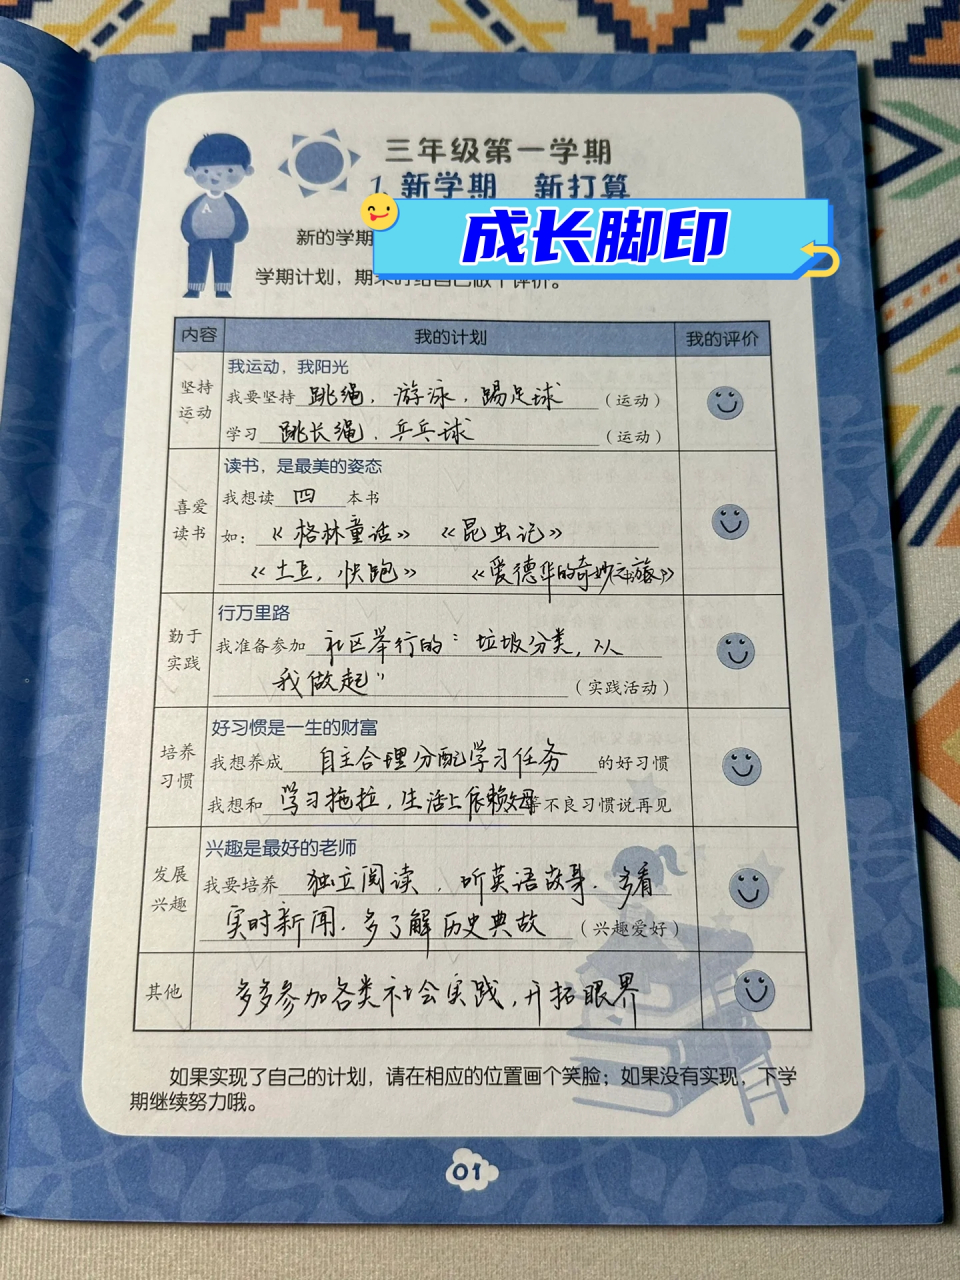 三年级第一学期
1.新学期 新打算
成长脚印
新的学期
学期计划，期末时给自己做个评价。
内容 我的计划 我的评价
坚持运动
我运动，我阳光
我要坚持 跳绳，游泳，踢足球 （运动）
学习 跳长绳，乒乒球 （运动）
喜爱读书
读书，是最美的姿态
我想读 四 本书
如：《格林童话》 《昆虫记》
《土豆，快跑》 《爱德华的奇妙之旅》
勤于实践
行万里路
我准备参加 社区举行的“垃圾分类，从
我做起” （实践活动）
培养习惯
好习惯是一生的财富
我想养成 自主合理分配学习任务 的好习惯
我想和 学习拖拉，生活上依赖父母 等不良习惯说再见
发展兴趣
兴趣是最好的老师
我要培养 独立阅读，听英语故事，多看
实时新闻，多了解历史典故 （兴趣爱好）
其他
多多参加各类社会实践，开拓眼界
如果实现了自己的计划，请在相应的位置画个笑脸；如果没有实现，下学
期继续努力哦。
01